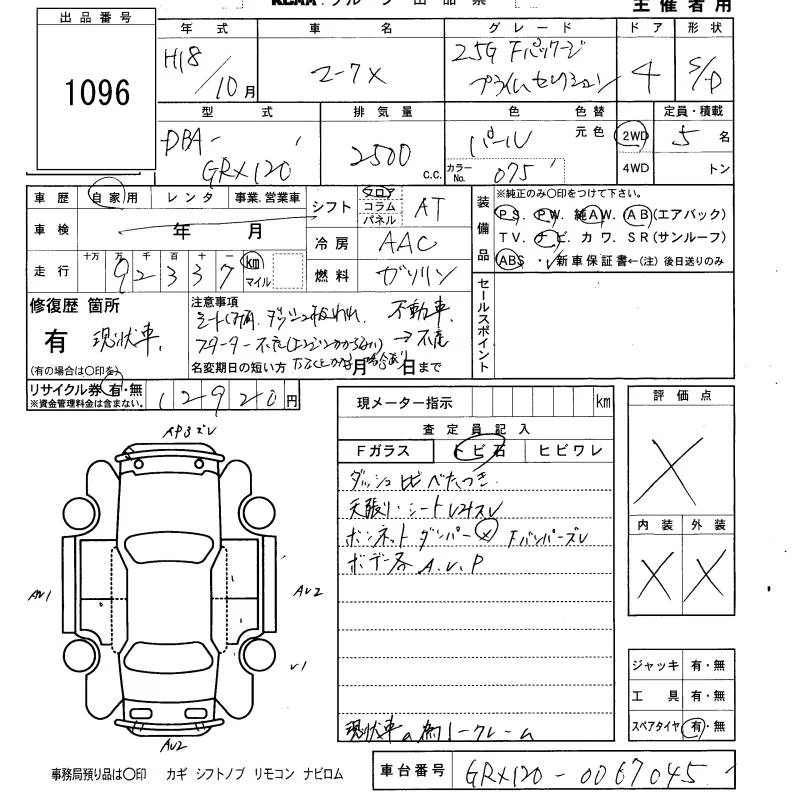 主催者用
出品番号
1096
年式 車名 グレード ドア 形状
H18/10月 マークX 2.5G Fパッケージ
プライムセレクション 4 S/D
型式 排気量 色 色替 定員・積載
DBA-
GRX120 2500 c.c. パール 元色 2WD 5名
カラーNo. 075 4WD トン
車歴 自家用 レンタ 事業.営業車
車検 年 月
走行 十万 万 千 百 十 一
92337 km マイル
シフト フロア コラム パネル AT
冷房 AAC
燃料 ガソリン
装備品
※純正のみ〇印をつけて下さい。
PS. PW. 純AW. AB(エアバック)
TV. ナビ. カワ. SR(サンルーフ)
ABS・新車保証書←(注)後日送りのみ
セールスポイント
修復歴 箇所
有 現状車
(有の場合は〇印を)
注意事項
不動車
スターター不良(エンジンかからない)→不良
名変期日の短い方 月 日まで
リサイクル券 有・無
※資金管理料金は含まない。
12920円
現メーター指示 km
査定員記入
Fガラス トビ石 ヒビワレ
ダッシュ ベタつき
天張り・シート
ボンネットダンパー× Fバンパーズレ
ボデー各A.U.P
現状車の為ノークレーム
評価点
×
内装 外装
× ×
ジャッキ 有・無
工具 有・無
スペアタイヤ 有・無
AP3ズレ
AU1
AU2
U1
AU2
事務局預り品は〇印 カギ シフトノブ リモコン ナビロム
車台番号 GRX120-0067045